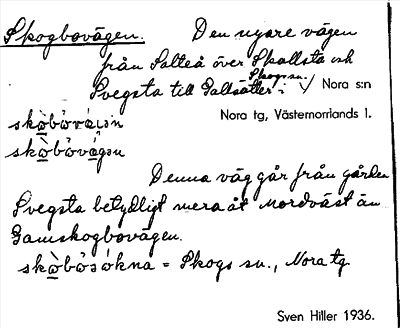 Skogbovägen. Den nyare vägen
från Salteå över Skallsta och
Svegsta till Gallsätter i Skogs sn. Nora s:n
Nora tg, Västernorrlands l.
Denna väg går från gården
Svegsta betydligt mera åt nordväst än
Gamskogbovägen.
= Skogs sn., Nora tg
Sven Hiller 1936.